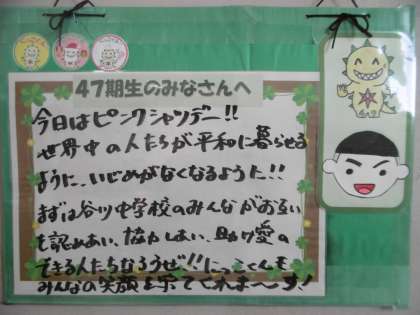 47期生のみなさんへ
今日はピンクシャツデー!!
世界中の人たちが平和に暮らせる
ように、いじめがなくなるように!!
まずは谷川中学校のみんながお互い
を認めあい、協力しあい、助け愛の
できる人たちなろうぜ!!にっこくんも
みんなの笑顔を